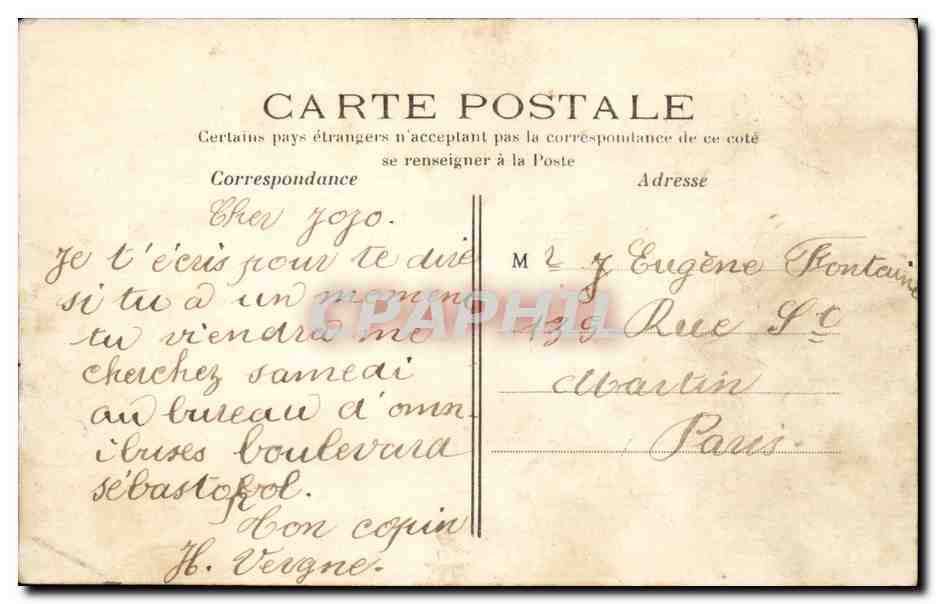 CARTE POSTALE
Certains pays étrangers n'acceptant pas la correspondance de ce coté
se renseigner à la Poste
Correspondance
Cher Jojo.
Je t'écris pour te dire
si tu a un momen
tu viendra me
cherchez samedi
au bureau d'omn-
ibuses boulevard
sébastopol.
Ton copin
H. Vergne.
Adresse
Mr J Eugène Fontaine
139 Rue St
Martin
Paris.
CPAPHIL